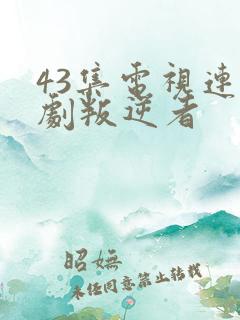 43集電視連
劇叛逆者
昭嫵
未任同意禁止转载